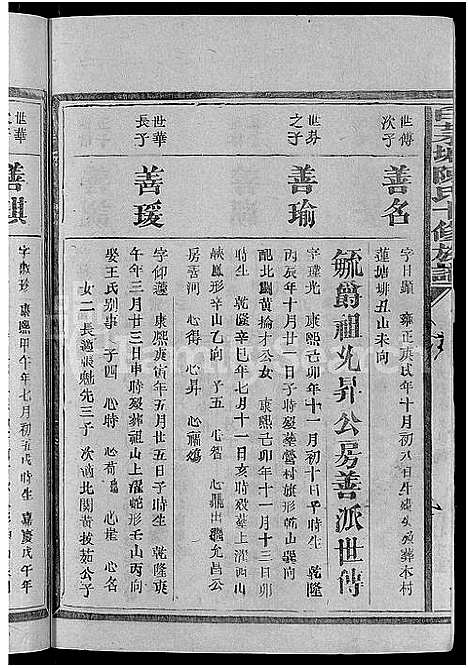 世傳
次子
善名
字日顯
雍正庚戌年十月初八日
葬木村
蓮塘排丑山未向
毓爵祖允昇公房善派世傳
世芬
之子
善瑜
字瑋光 康熙己卯年十一月初十日 時生 乾隆
丙辰年十月廿一日子時歿葬營村旗形乾山巽向
配北關黃掄才公女 康熙己卯年十一月十三日卯
時生 乾隆辛巳年七月十一日亥時歿葬上濯西山
形辛山乙向 子五 心智 心鼎出繼允昌公
房 心得 心昇 心福
世華
長子
善瑗
字仰蓮 康熙庚寅年五月廿五日子時生 乾隆庚
午年三月廿三日申時歿葬祖山上濯蛇形壬山丙向
娶王氏別事 子四 心時 心荷 心崔 心名
女二長適張魁先三子 次適北關黃拔茹公子
世華
善騏
康熙甲午年七月初五戌時生 嘉慶戊午年